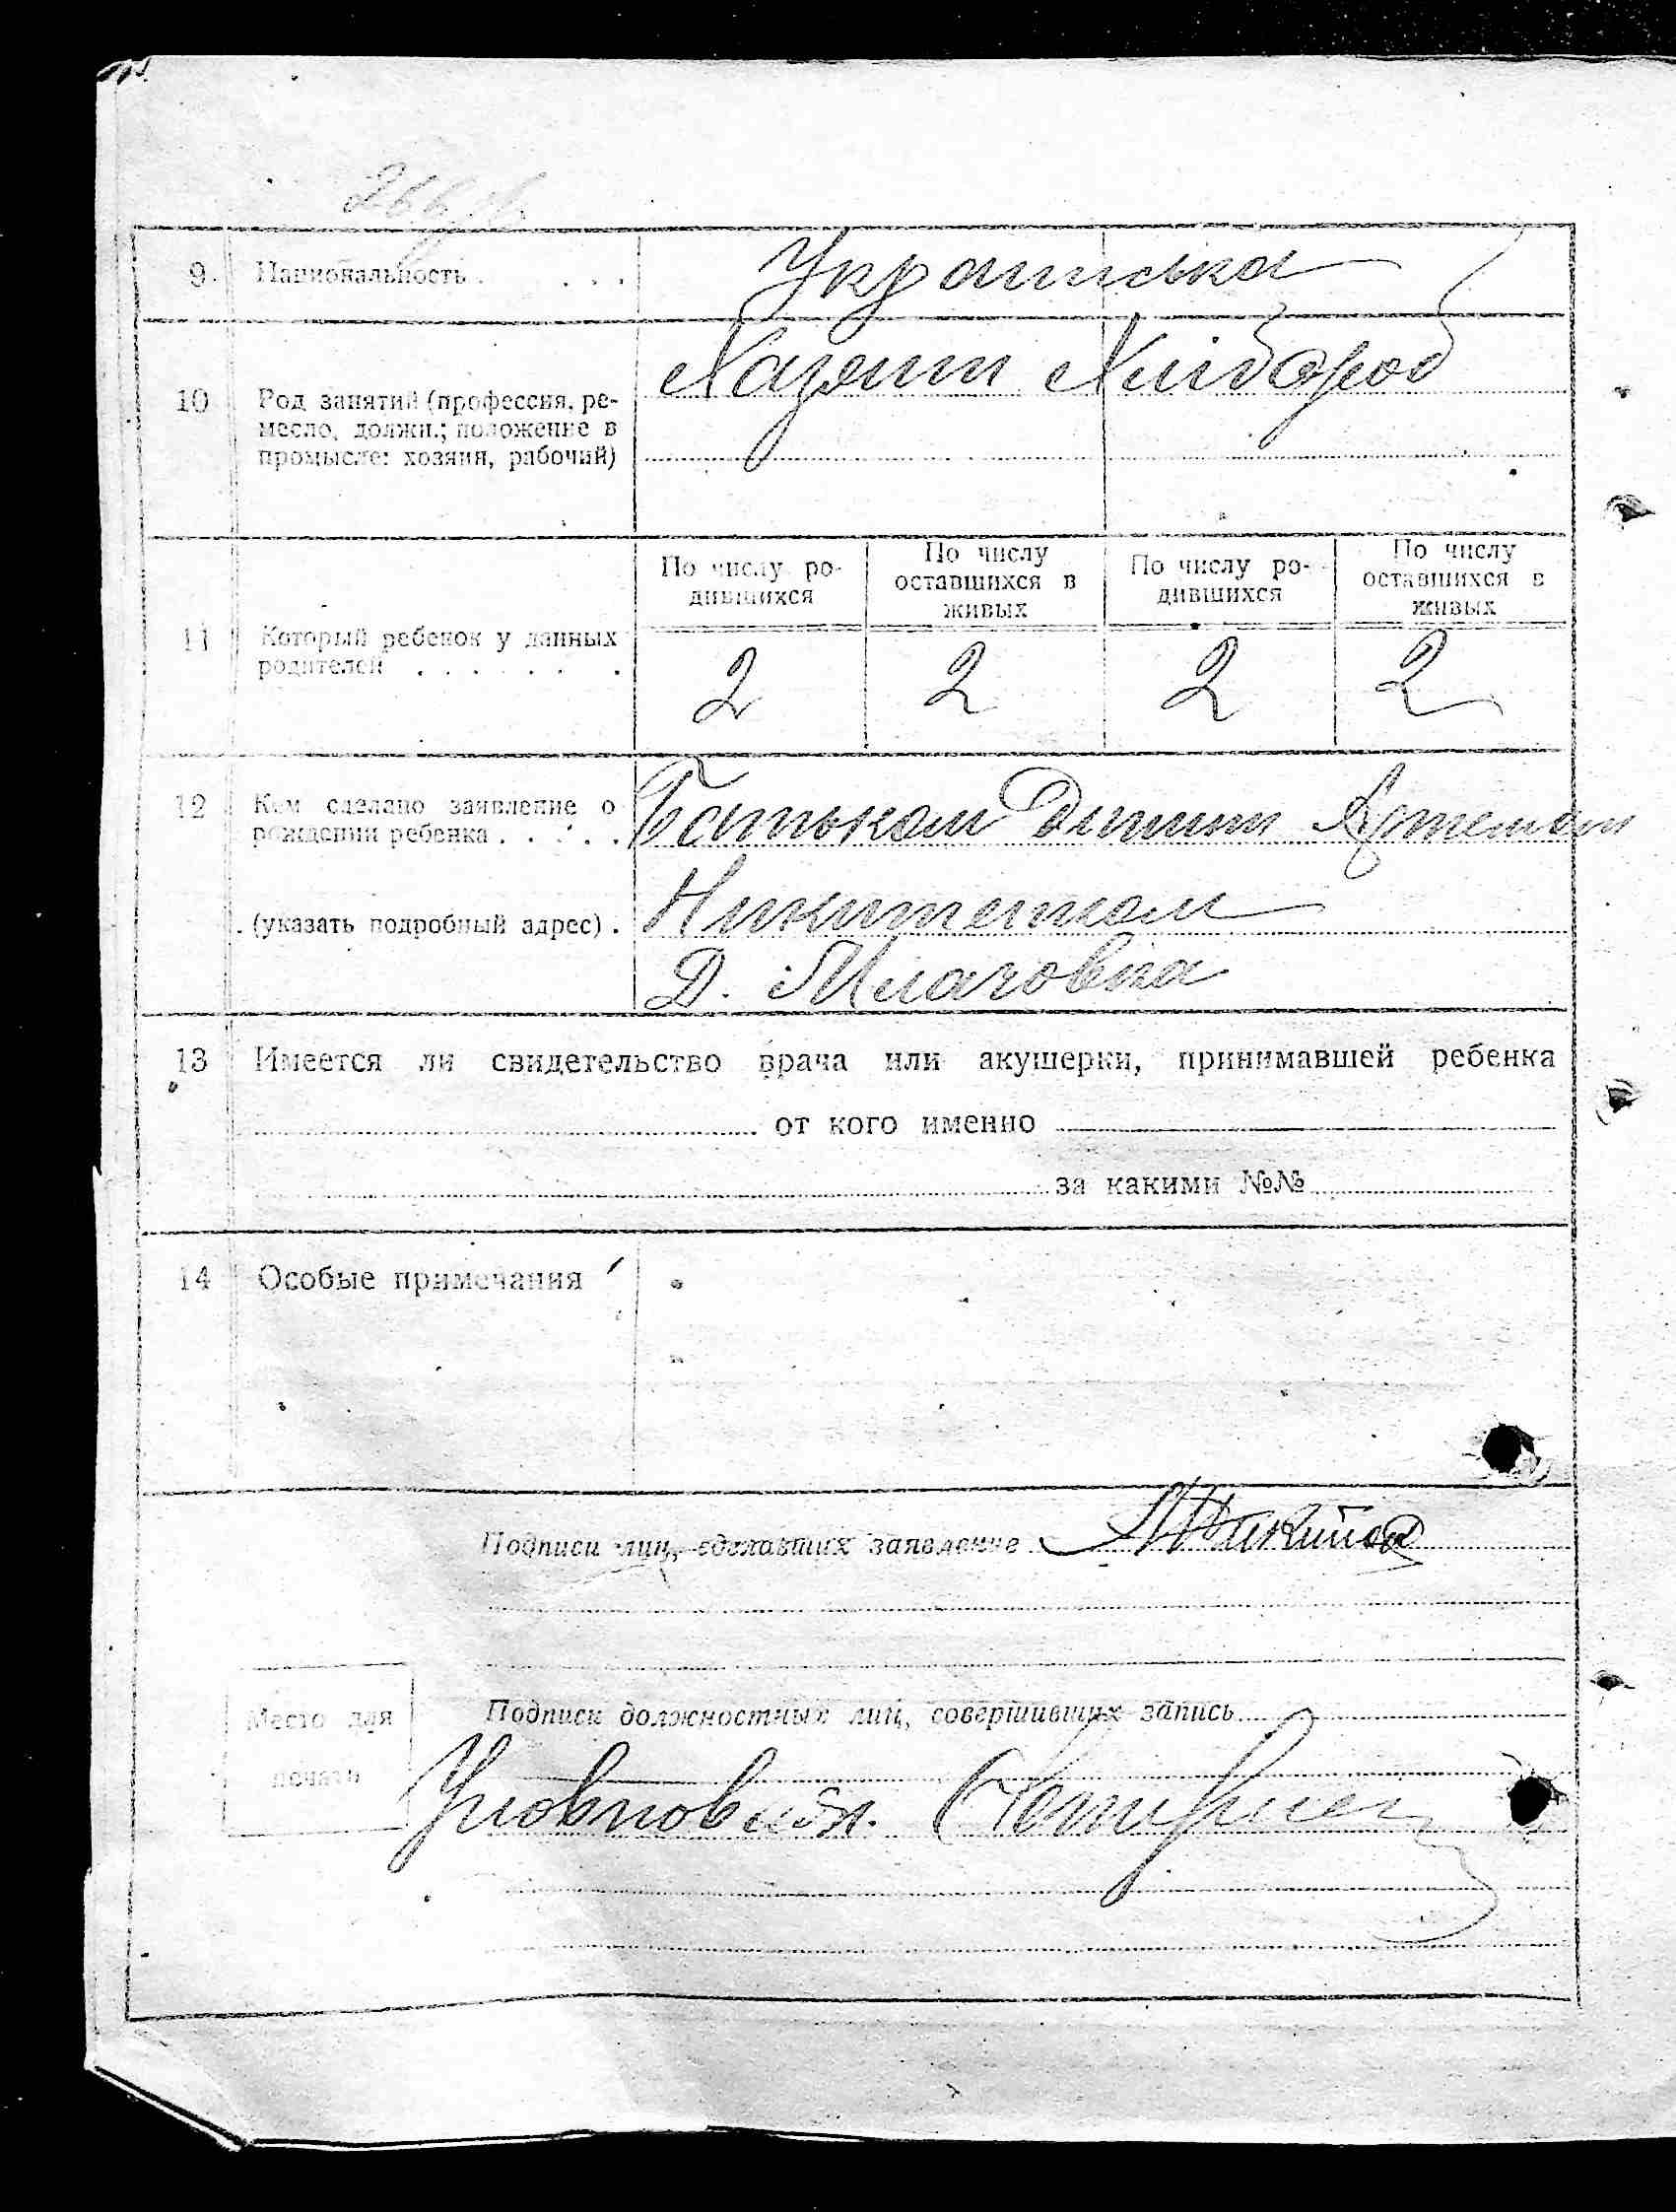 9. Национальность . . . .
Украинська
10 Род занятий (профессия, ре-
месло, должн.; положение в
промысле: хозяин, рабочий)
Хазяин Хлібороб
11 Который ребенок у данных
родителей . . . . . .
По числу ро-
дившихся
По числу
оставшихся в
живых
По числу ро-
дившихся
По числу
оставшихся в
живых
2 2 2 2
12 Кем сделано заявление о
рождении ребенка . . . . .
Батьком Дитини Артемом
(указать подробный адрес) .
Никитенком
Д.
13 Имеется ли свидетельство врача или акушерки, принимавшей ребенка
от кого именно
за какими №№
14 Особые примечания
Подписи лиц, сделавших заявление
Место для
печати
Подписи должностных лиц, совершивших запись